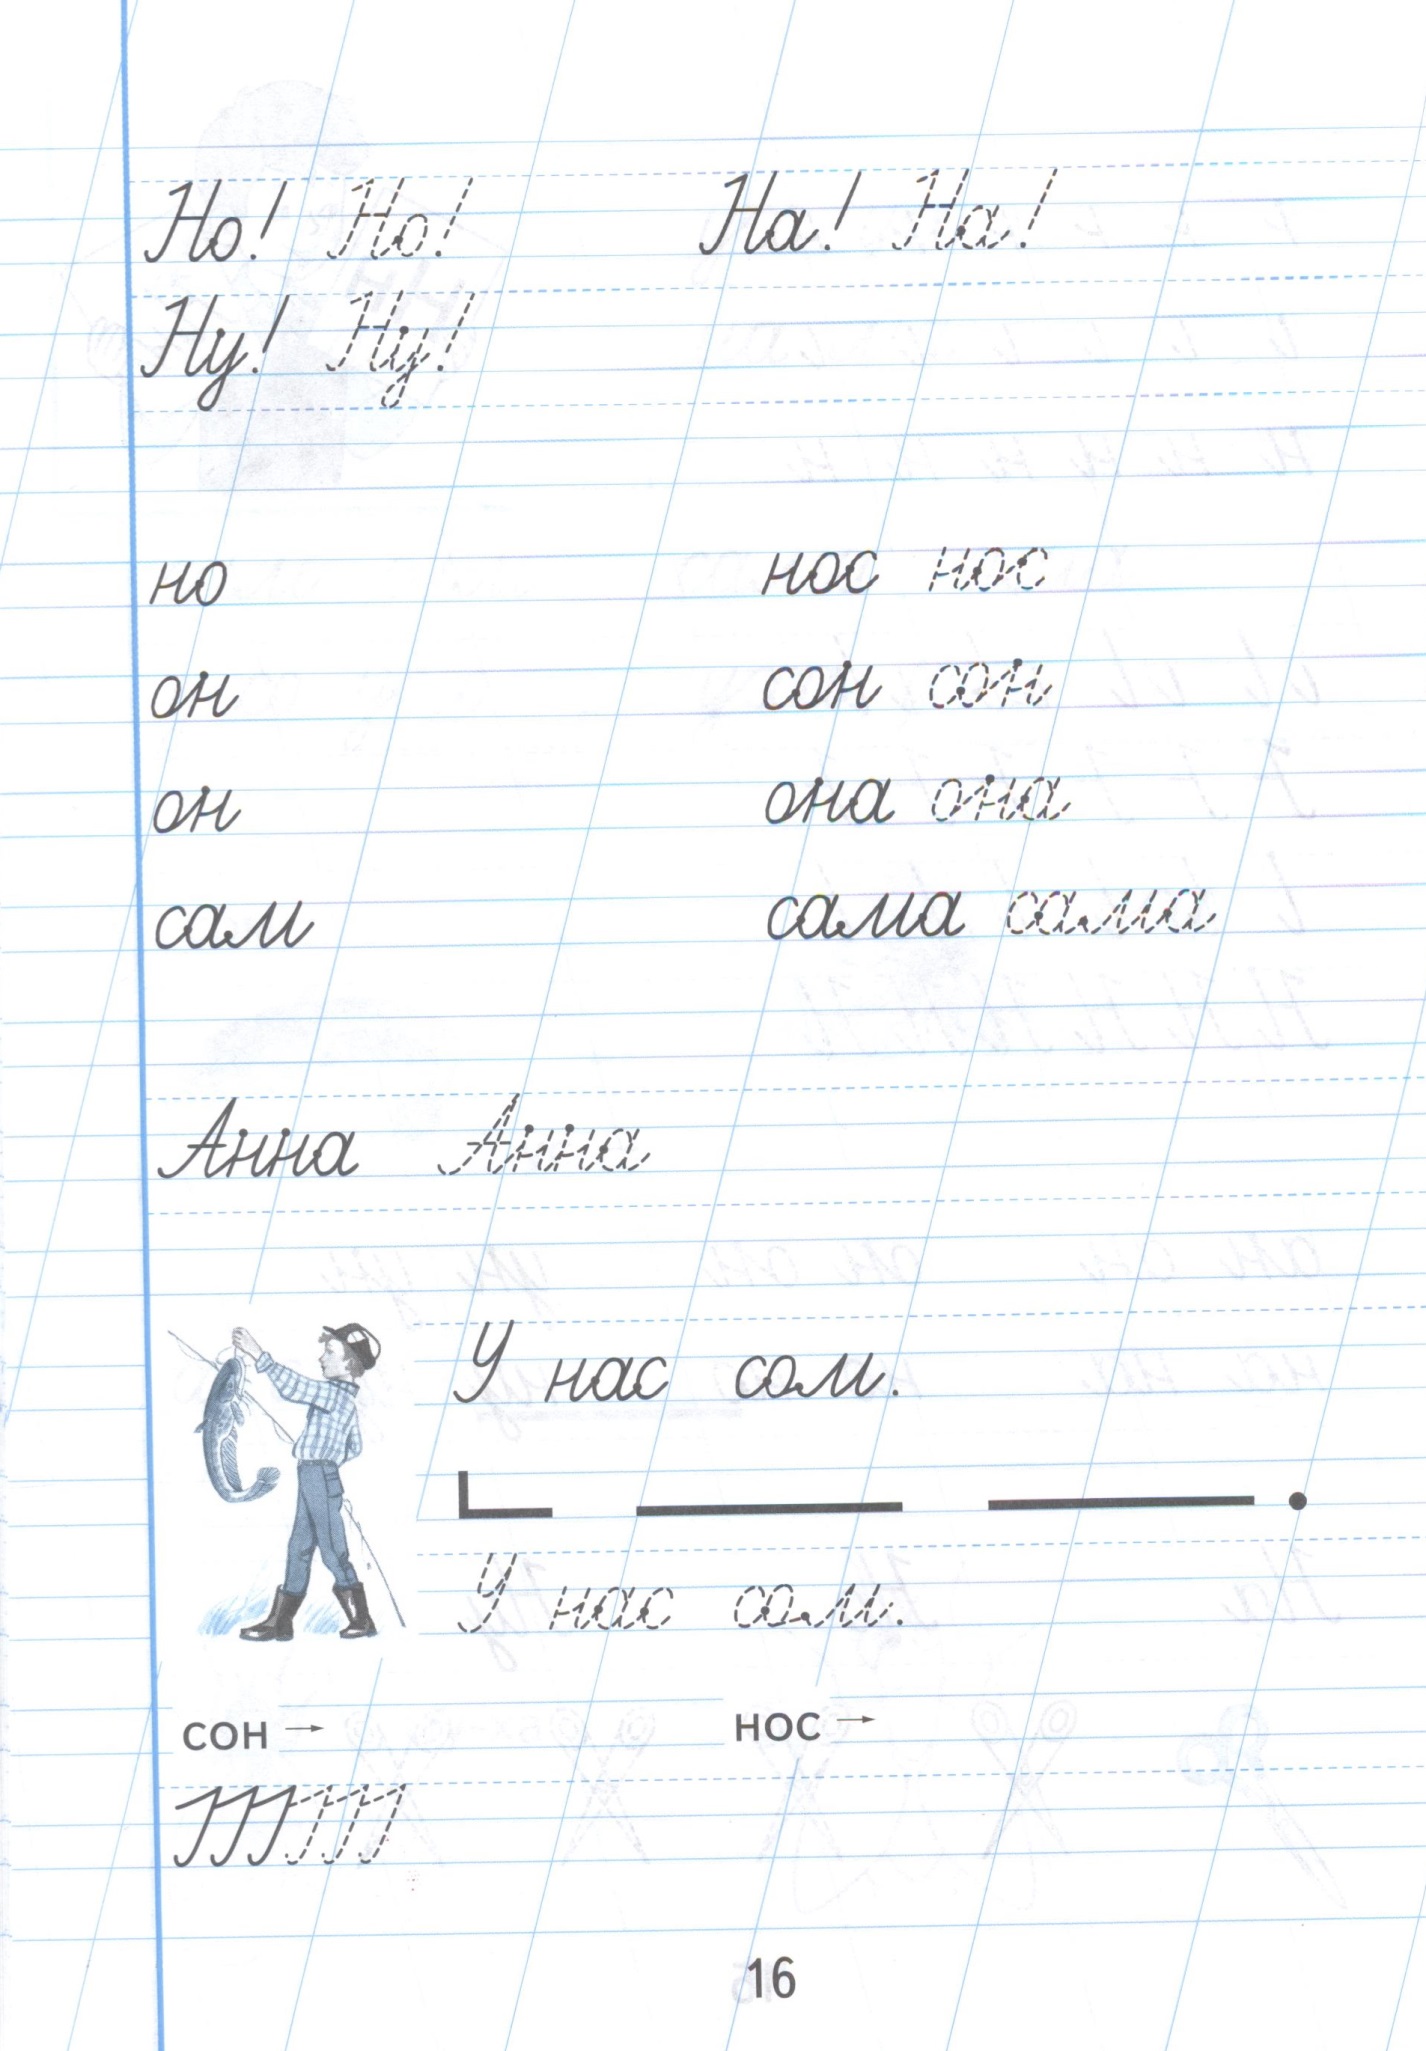 Но! Но! На! На!
Ну! Ну!
но нос нос
он сон сон
он она она
сам сама сама
Анна Анна
У нас сом.
У нас сом.
СОН → НОС →
16